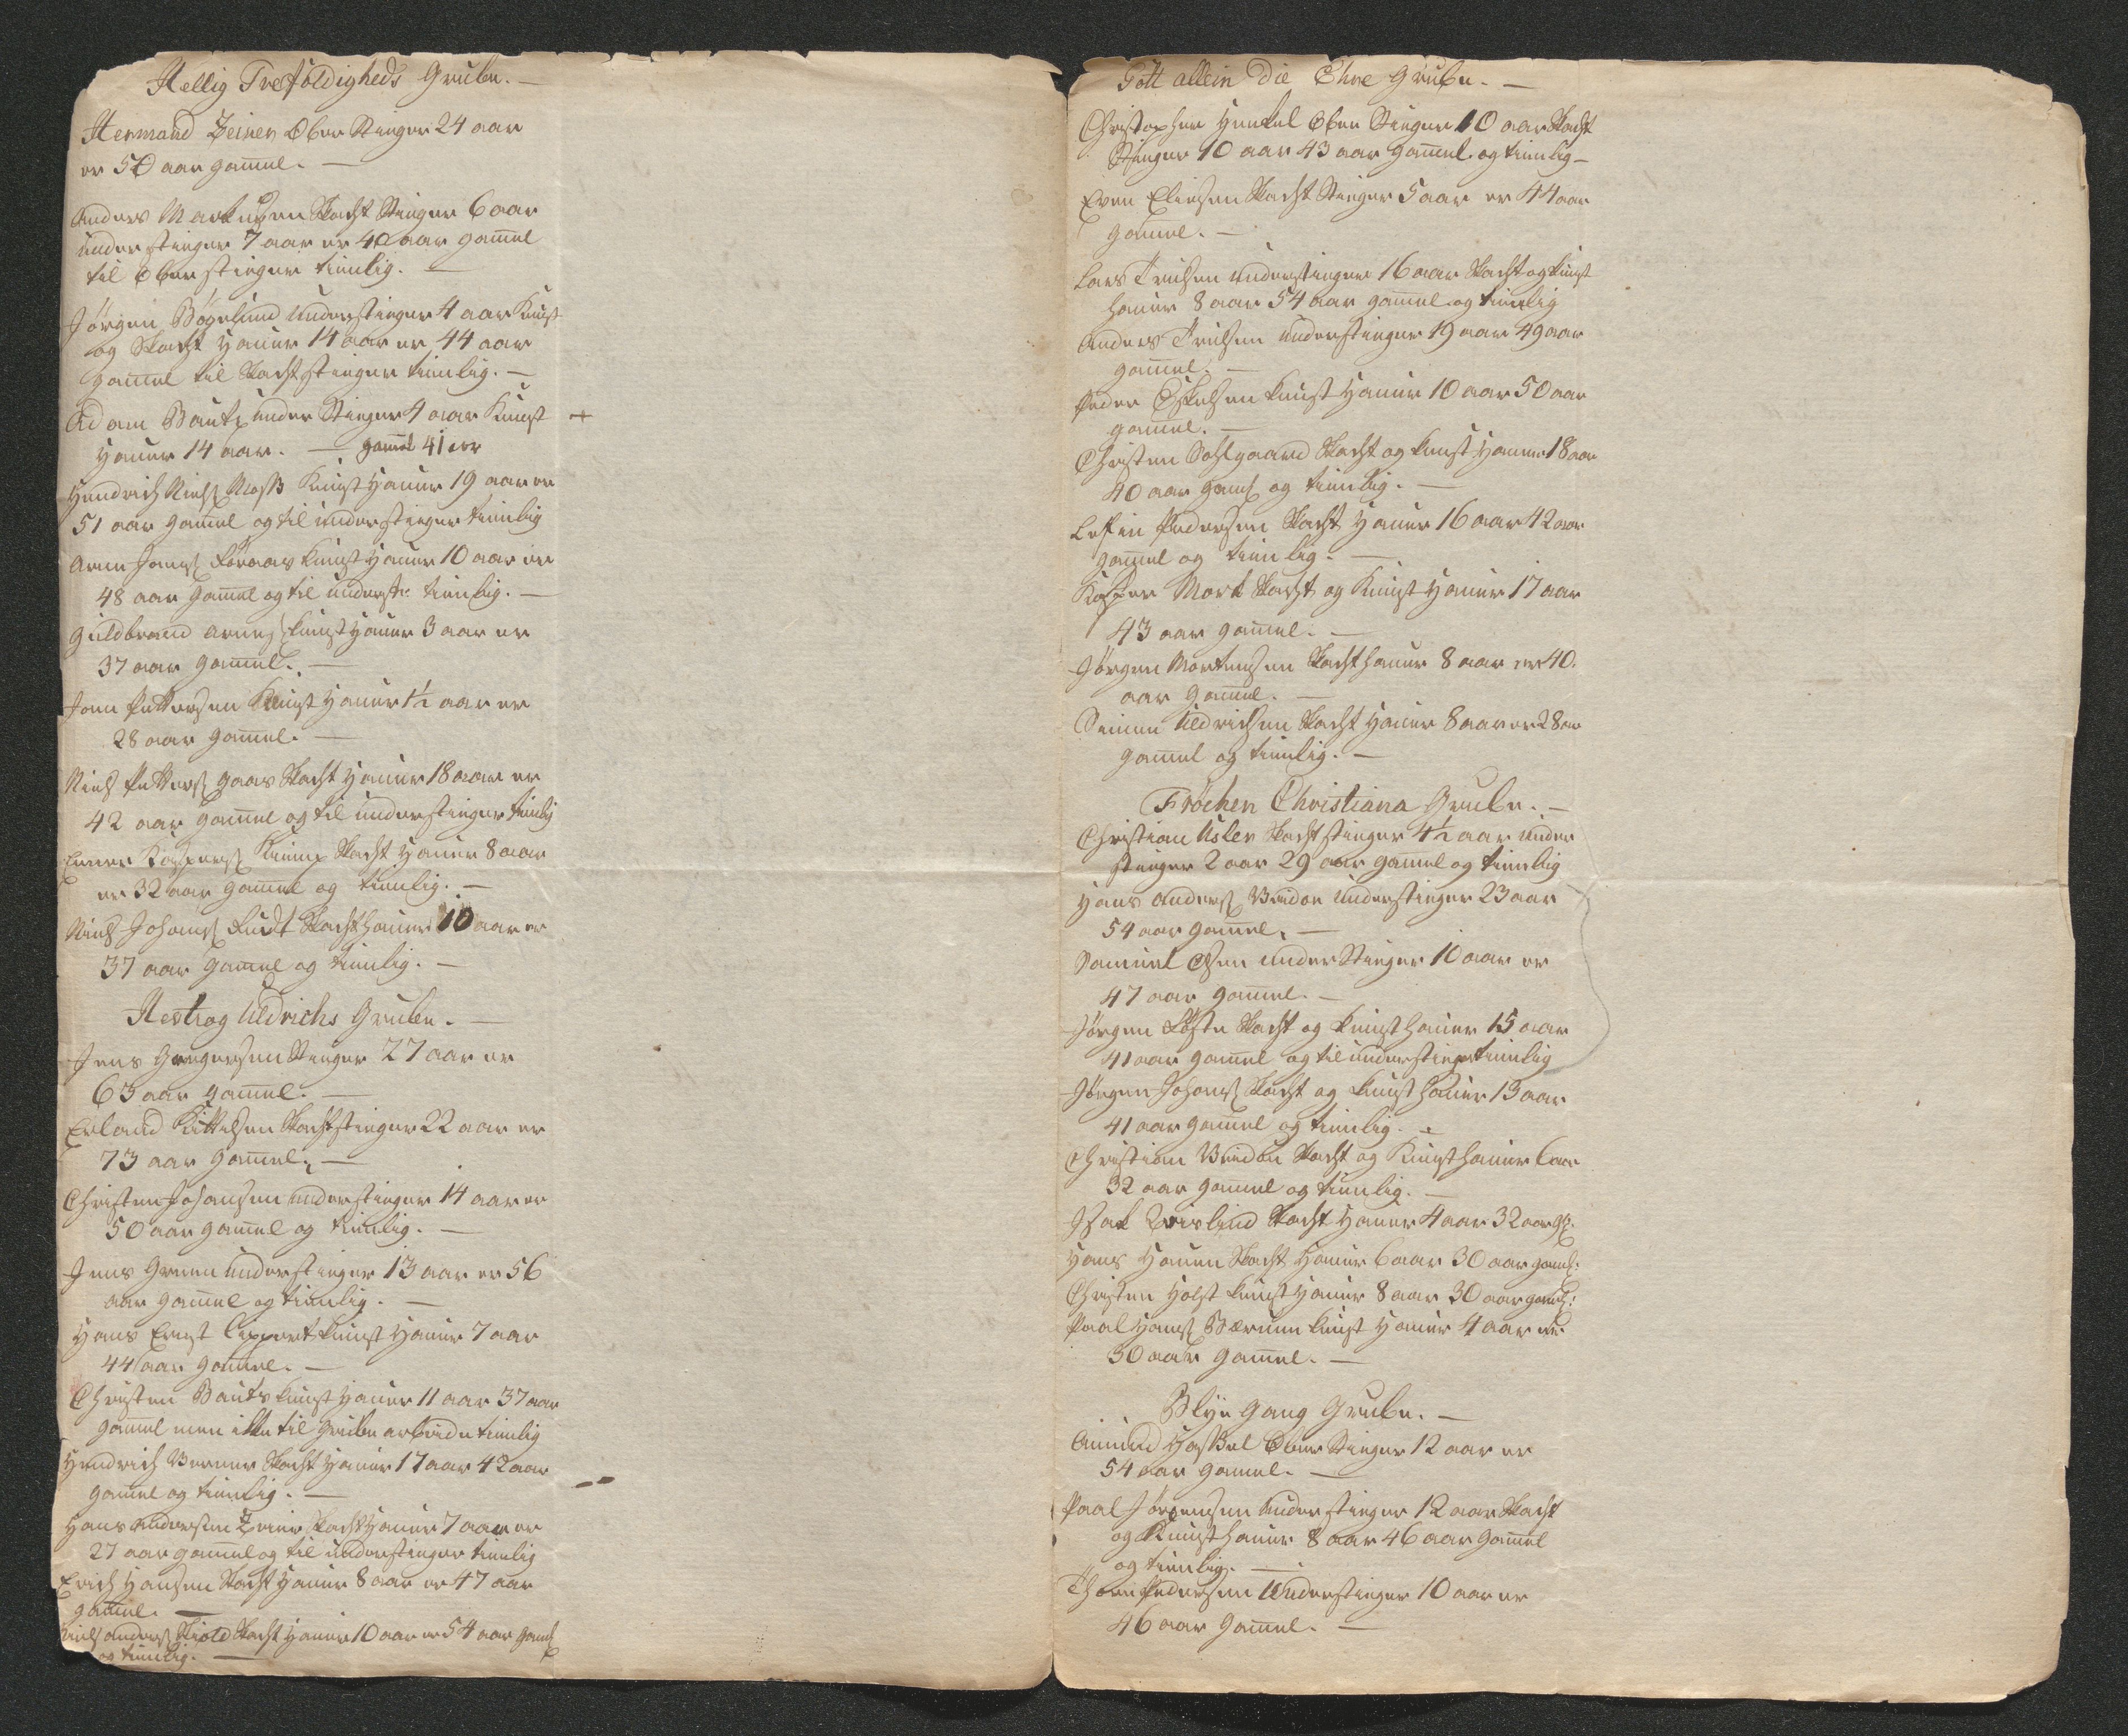 Hellig Trefoldigheds Grube. —
Hermand Zeiner Ober Stieger 24 aar
er 50 aar gam̄el. —
Anders Markusen Skacht Stieger 6 aar
under stieger 7 aar er 40 aar gam̄el
til Ober stieger tienlig. —
Jörgen Bögelund understieger 4 aar Kunst
og Skacht Hauer 14 aar er 44 aar
gam̄el til Skachtstieger tienlig. —
Adam Bautz under Stieger 4 aar Kunst +
Hauer 14 aar. — gam̄el 41 aar
Hendrich Niels Moss Kunst Hauer 19 aar er
51 aar gam̄el og til understieger tienlig
Arne Jans Foraas Kunst Hauer 10 aar er
48 aar gam̄el og til underst: tienlig. —
Guldbrand Arnes Kunst Hauer 3 aar er
37 aar gam̄el. —
Jonn Pettersen Kunst Hauer 1½ aar er
28 aar gam̄el. —
Niels Petters Gaas Skacht Hauer 18 aar er
42 aar gam̄el og til understieger tienlig
Kaspers Skacht Hauer 8 aar
er 32 aar gam̄el og tienlig. —
Niels Johans Skachthauer 10 aar er
37 aar gam̄el og tienlig. —
Hertzog Uldrichs Grube. —
Jens Gregersen Stieger 27 aar er
63 aar gam̄el. —
Erland Kittelsen Skachtstieger 22 aar er
73 aar gam̄el. —
Christen Johansen understieger 14 aar er
50 aar gam̄el og tienlig. —
Jens Green understieger 13 aar er 56
aar gam̄el og tienlig. —
Hans Ernst Lippert Kunst Hauer 7 aar
44 aar gam̄el. —
Christen Bautz Kunst Hauer 11 aar 37 aar
gam̄el men ikke til Grube arbeide tienlig
Hendrich Verner Skacht Hauer 17 aar 42 aar
gam̄el og tienlig. —
Hans Andersen Skacht Hauer 7 aar er
27 aar gam̄el og til understieger tienlig
Erich Hansen Skacht Hauer 8 aar er 47 aar
gam̄el. —
Niels Anders Skiold Skacht Hauer 10 aar er 54 aar gaml
og tienlig. —
Gott allein die Ehre Grube. —
Christopher Henkel Ober Stieger 10 aar Skacht
Stieger 10 aar 43 aar gam̄el og tienlig —
Even Eliesen Skacht Stieger 5 aar er 44 aar
gam̄el. —
Lars Truls en understieger 16 aar Skacht og Kunst
hauer 8 aar 54 aar gam̄el og tienlig
Anders Trulsen understieger 19 aar 49 aar
gam̄el. —
Peder Eskelsen Kunst Hauer 10 aar 50 aar
gam̄el. —
Christen Sohlgaard Skacht og Kunst Hauer 18 aar
40 aar gaml og tienlig. —
Pedersen Skacht Hauer 16 aar 42 aar
gam̄el og tienlig. —
Kasper Mork Skacht og Kunst Hauer 17 aar
43 aar gam̄el. —
Jörgen Mortensen Skachthauer 8 aar er 40.
aar gam̄el. —
Simen Uldrichsen Skacht Hauer 8 aar er 28 aar
gam̄el og tienlig. —
Fröchen Christiana Grube. —
Christian Usler Skachtstieger 4½ aar under
stieger 2 aar 29 aar gam̄el og tienlig
Hans Anders understieger 23 aar
54 aar gam̄el. —
Samuel Olsen under Stieger 10 aar er
47 aar gam̄el. —
Jörgen Skacht og Kunst hauer 15 aar
41 aar gam̄el og til understieger tienlig
Jörgen Johans Skacht og Kunst hauer 13 aar
41 aar gam̄el og tienlig. —
Christian Skacht og Kunst hauer 6 aar
32 aar gam̄el og tienlig. —
Isak Skacht Hauer 4 aar 32 aar
Hans Hauen Skacht Hauer 6 aar 30 aar gaml:
Christen Holst Kunst Hauer 8 aar 30 aar gaml:
Paal Hans Bærum Kunst Hauer 4 aar er
30 aar gam̄el. —
Blye Gang Grube. —
Amund Hassel Ober Stieger 12 aar er
54 aar gam̄el. —
Paal Jörgensen under stieger 12 aar Skacht
og Kunsthauer 8 aar 46 aar gam̄el
og tienlig. —
Thore Pedersen Understieger 10 aar er
46 aar gam̄el. —